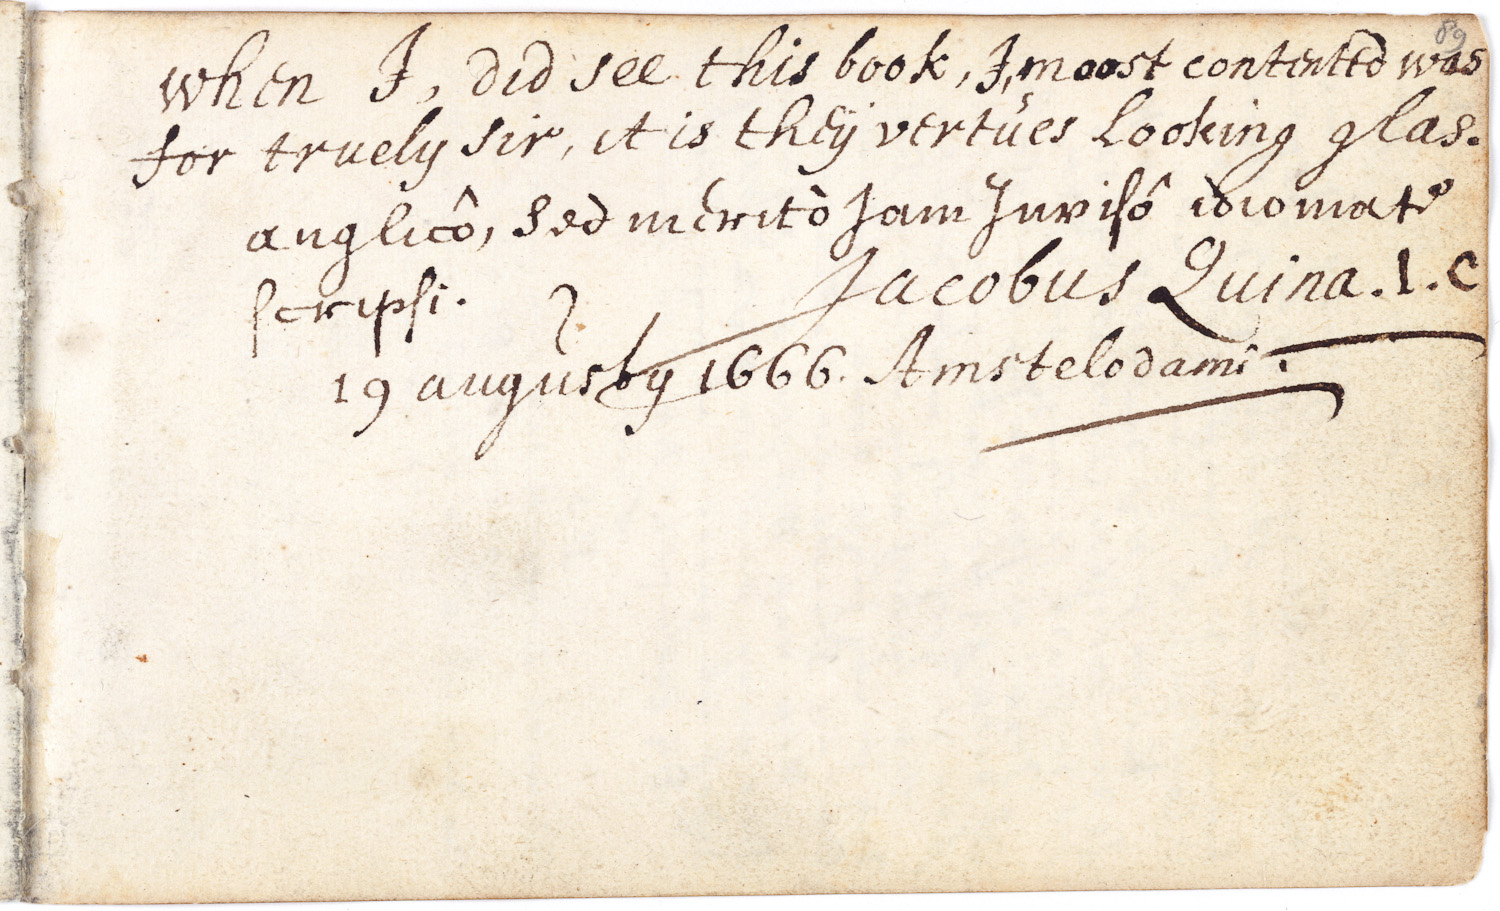 89
when I, did see this book, I, moost contented was
for truely sir, it is theÿ vertúes Looking glas.
anglicô, sed meritò Jam Jnvisô idiomate
scripsi. Jacobus Quina. I. C
19 augusty 1666. Amstelodami.